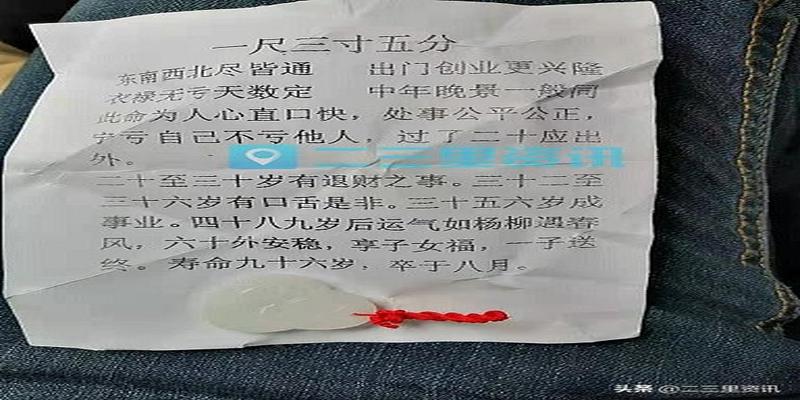 一尺三寸五分
东南西北尽皆通 出门创业更兴隆
衣禄无亏天数定 中年晚景一般同
此命为人心直口快，处事公平公正，
宁亏自己不亏他人，过了二十应出
外。
二三里资讯
二十至三十岁有退财之事。三十二至
三十六岁有口舌是非。三十五六岁成
事业。四十八九岁后运气如杨柳遇春
风，六十外安稳，享子女福，一子送
终。寿命九十六岁，卒于八月。
头条 @二三里资讯